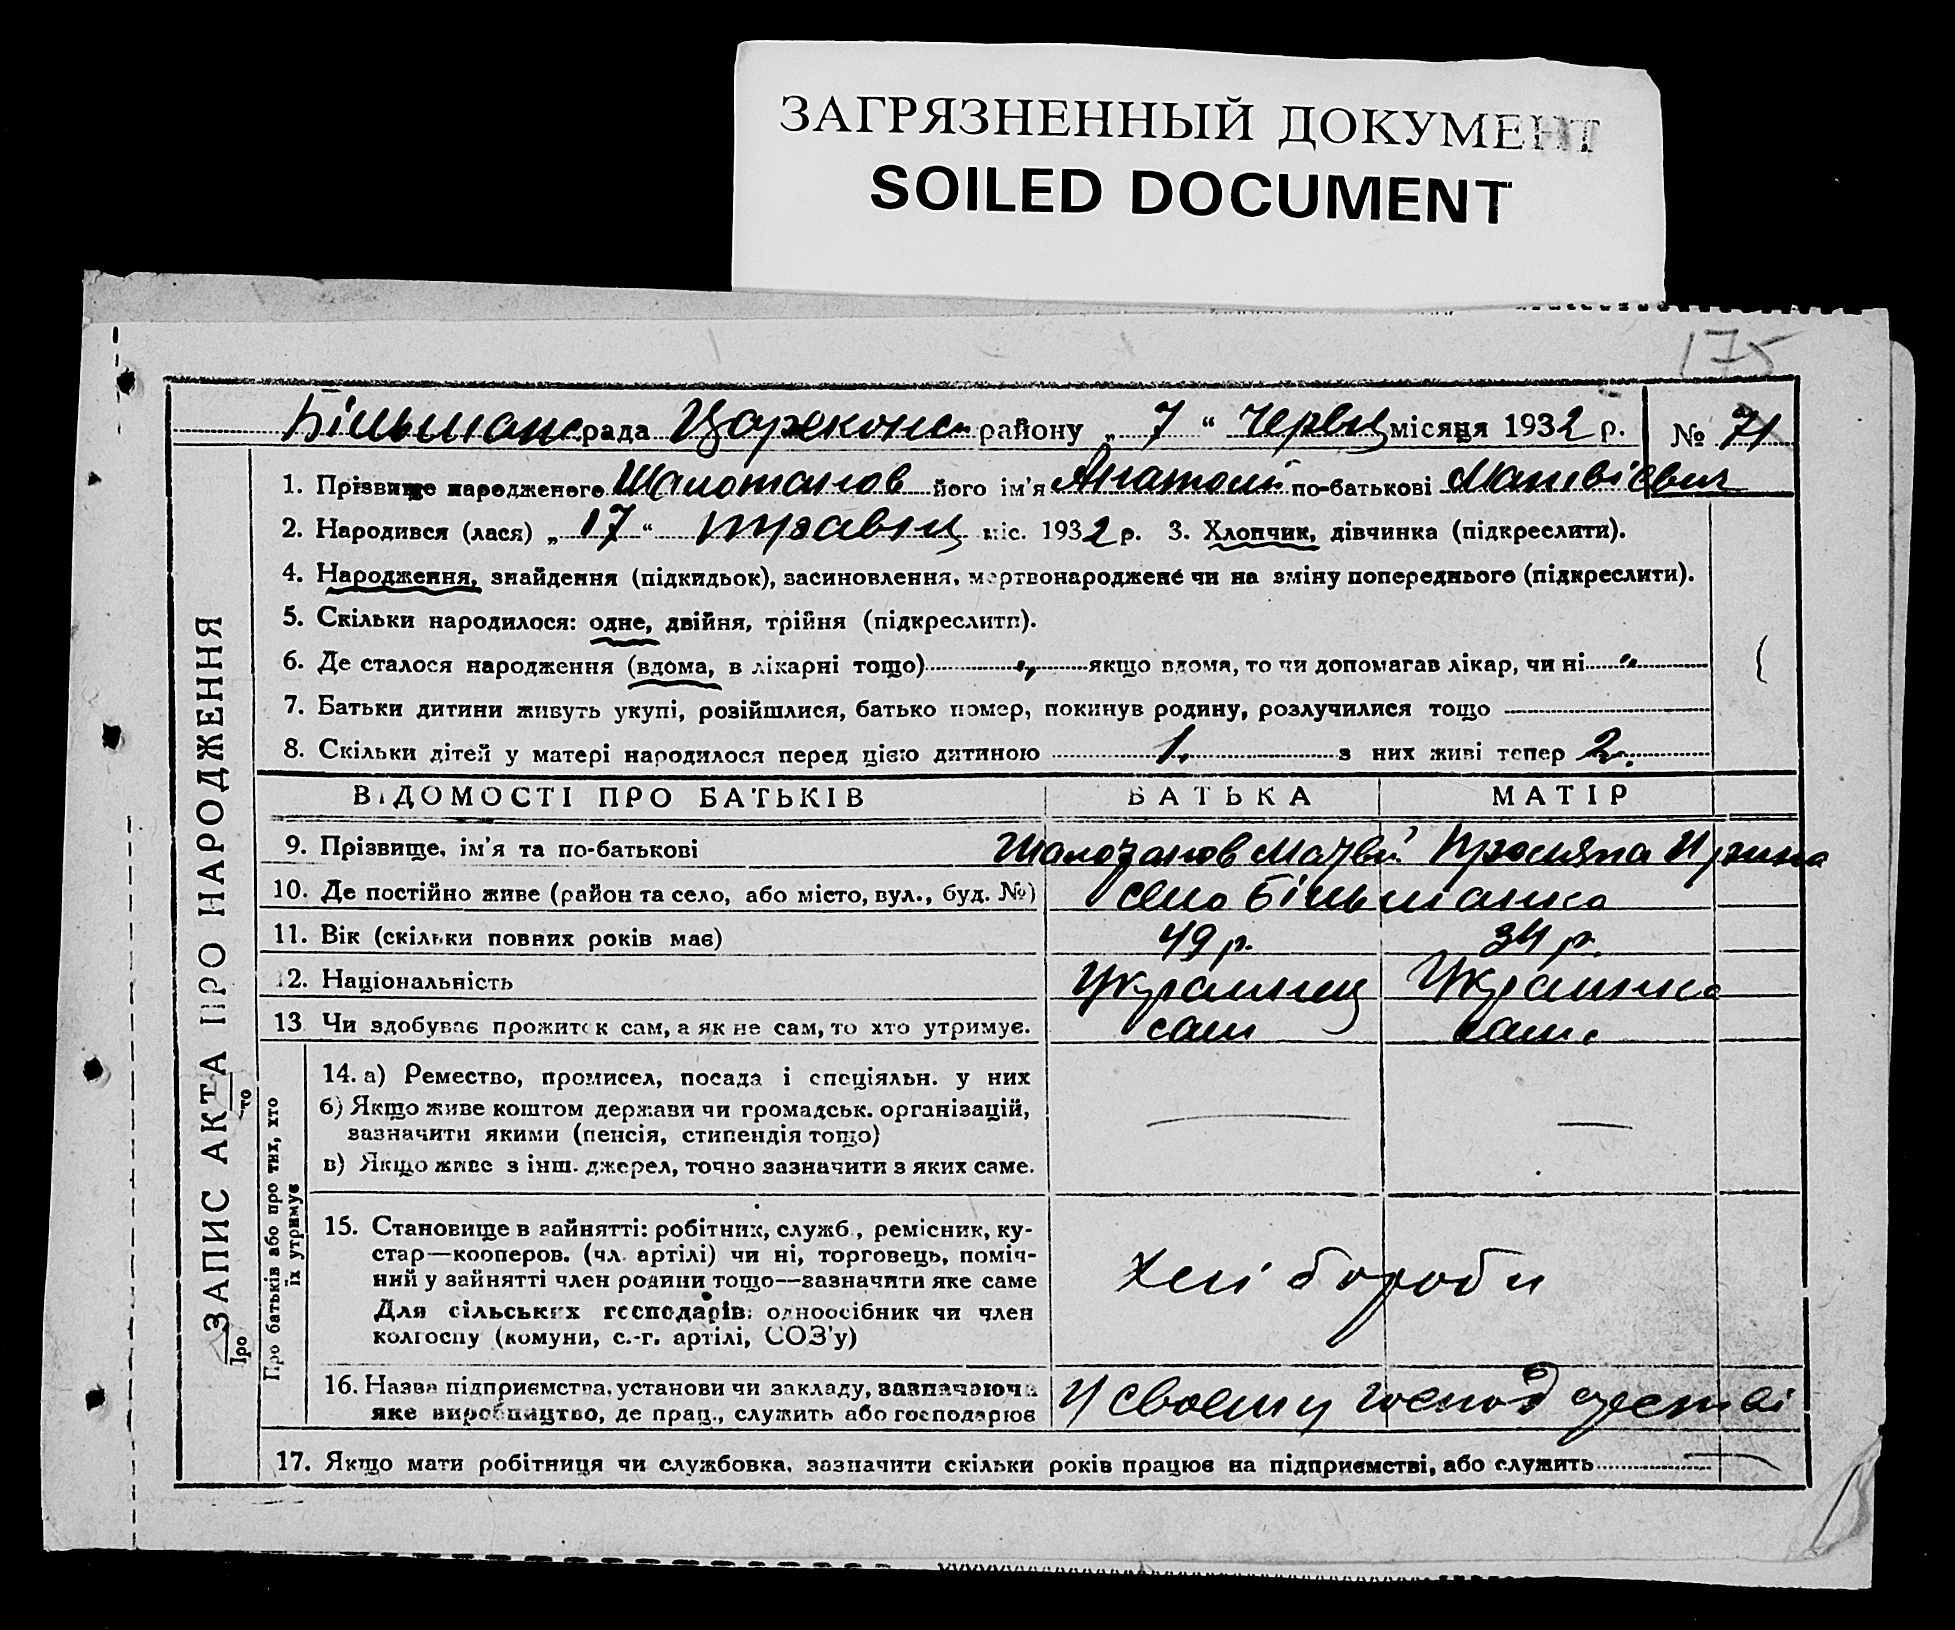 ЗАГРЯЗНЕННЫЙ ДОКУМЕНТ
SOILED DOCUMENT
175
Більшанс. рада Царжконс. району „ 7 “ Червця місяця 1932 р. № 71
ЗАПИС АКТА ПРО НАРОДЖЕННЯ
1. Прізвище народженого Шаломанов його ім'я Анатолій по-батькові Матвієвич
2. Народився (лася) „ 17 “ травця міс. 1932 р. 3. Хлопчик, дівчинка (підкреслити).
4. Народження, знайдення (підкидьок), засиновлення, мертвонароджене чи на зміну попереднього (підкреслити).
5. Скільки народилося: одне, двійня, трійня (підкреслити).
6. Де сталося народження (вдома, в лікарні тощо) „ якщо вдома, то чи допомагав лікар, чи ні „
7. Батьки дитини живуть укупі, розійшлися, батько помер, покинув родину, розлучилися тощо
8. Скільки дітей у матері народилося перед цією дитиною 1. з них живі тепер 2.
ВІДОМОСТІ ПРО БАТЬКІВ БАТЬКА МАТІР
9. Прізвище, ім'я та по-батькові Шаломанов Матвій Ирина
10. Де постійно живе (район та село, або місто, вул., буд. №) село Більшанка
11. Вік (скільки повних років має) 49 р. 34 р.
12. Національність Украинец Украинка
13. Чи здобуває прожиток сам, а як не сам, то хто утримує. сам сама
Про батьків або про тих, хто їх утримує
14. а) Ремество, промисел, посада і спеціяльн. у них
б) Якщо живе коштом держави чи громадськ. організацій,
зазначити якими (пенсія, стипендія тощо)
в) Якщо живе з інш. джерел, точно зазначити з яких саме.
15. Становище в зайнятті: робітник, служб., ремісник, ку-
стар—кооперов. (чл. артілі) чи ні, торговець, поміч-
ний у зайнятті член родини тощо—зазначити яке саме
Для сільських господарів: одноосібник чи член
колгоспу (комуни, с.-г. артілі, СОЗ'у)
хлі бороби
16. Назва підприємства, установи чи закладу, зазначаючи
яке виробництво, де прац., служить або господарює
У своему господарстві
17. Якщо мати робітниця чи службовка, зазначити скільки років працює на підприємстві, або служить